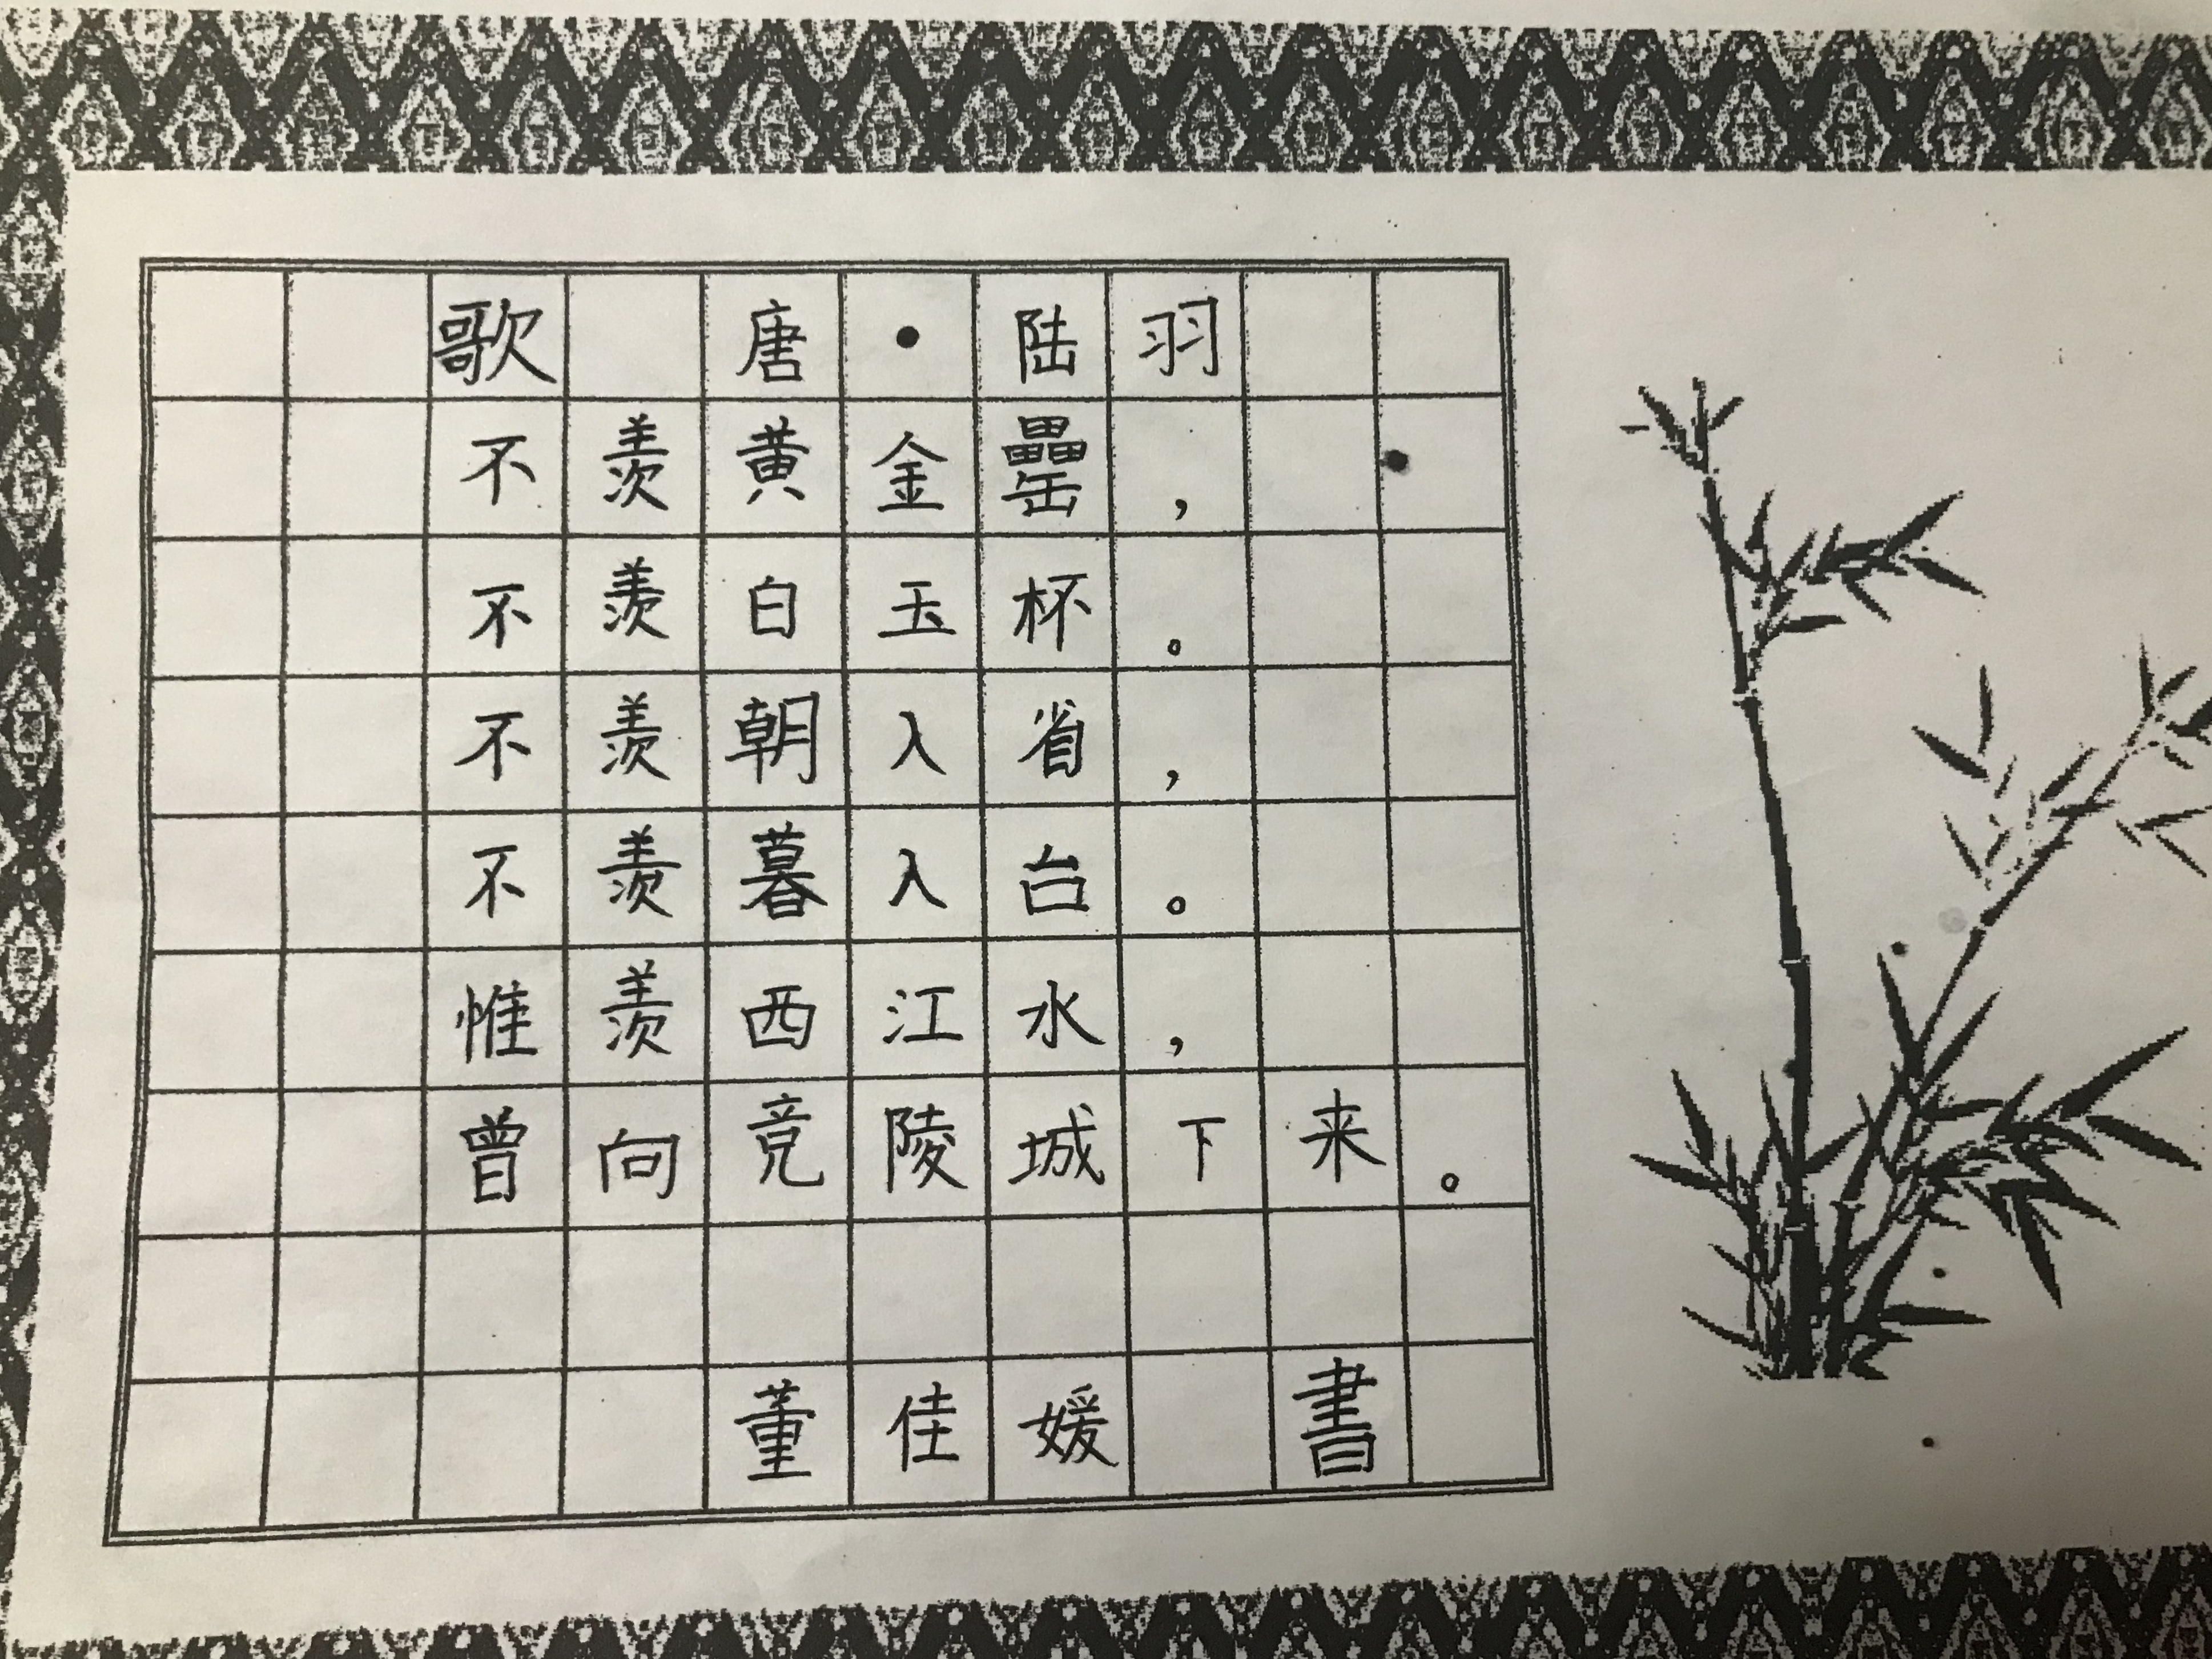 歌 唐·陆羽
不羡黄金罍，
不羡白玉杯。
不羡朝入省，
不羡暮入台。
惟羡西江水，
曾向竞陵城下来。
董佳媛 書